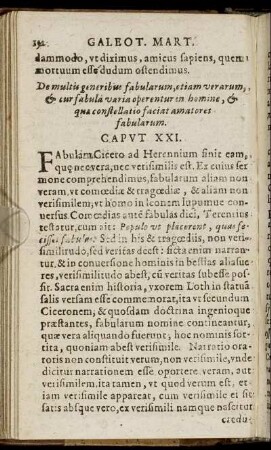 392 GALEOT. MART.
dammodo, vt diximus, amicus sapiens, quem
mortuum esse dudum ostendimus.
De multis generibus fabularum, etiam verarum,
& cur fabula varia operentur in homine, &
qua constellatio faciat amatores
fabularum.
CAPVT XXI.
FAbulam Cicero ad Herennium finit eam,
que nec vera, nec verisimilis est. Ex cuius ser
mone comprehendimus, fabularum aliam non
veram, vt comœdiæ & tragœdiæ, & aliam non
verisimilem, vt homo in leonem lupumue con
uersus Comœdias autē fabulas dici, Terentius
testatur, cum ait: Populo vt placerent, quas fe
cisset fabulas: Sed in his & tragœdiis, non ve-
risimilitudo, sed veritas deest: ficta enim narran-
tur, & in conuersione hominis in bestias aliasue
res, verisimilitudo abest, cū veritas subesse pos-
sit. Sacra enim historia, vxorem Loth in statuā
salis versam esse commemorat, ita vt secundum
Ciceronem; & quosdam doctrina ingenioque
præstantes, fabularum nomine contineantur,
quæ vera aliquando fuerunt, hoc nominis for-
tita, quoniam abest verisimile. Narratio ora-
toris non constituit verum, non verisimile, vnde
dicitur narrationem esse oportere veram, aut
verisimilem, ita tamen, vt quod verum est, et-
iam verisimile appareat, cum verisimile ei sit
satis absque vero, ex verisimili namque nascitur
credu-